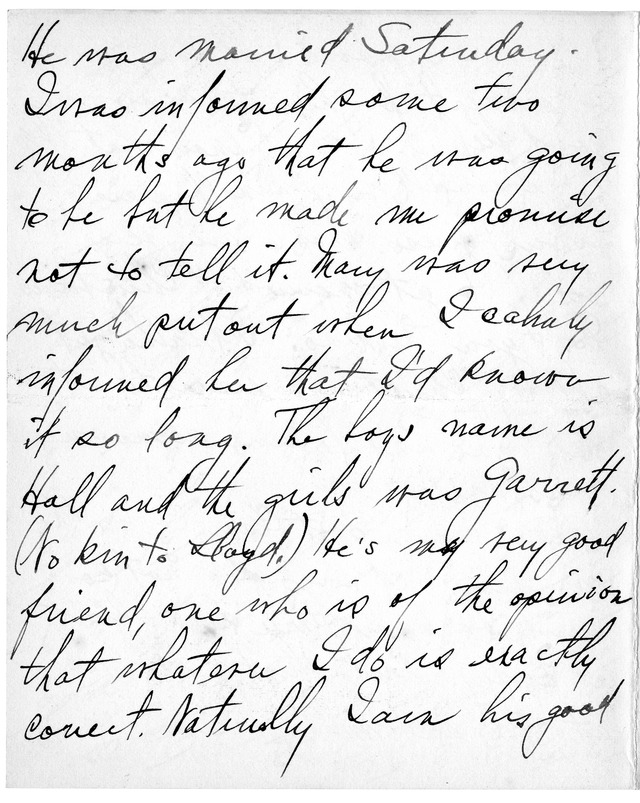 He was married Saturday.
I was informed some two
months ago that he was going
to be but he made me promise
not to tell it. Mary was very
much put out when I calmly
informed her that I'd known
it so long. The boys name is
Hall and the girls was Garrett.
(No kin to Lloyd.) He's my very good
friend, one who is of the opinion
that whatever I do is exactly
correct. Naturally I am his good